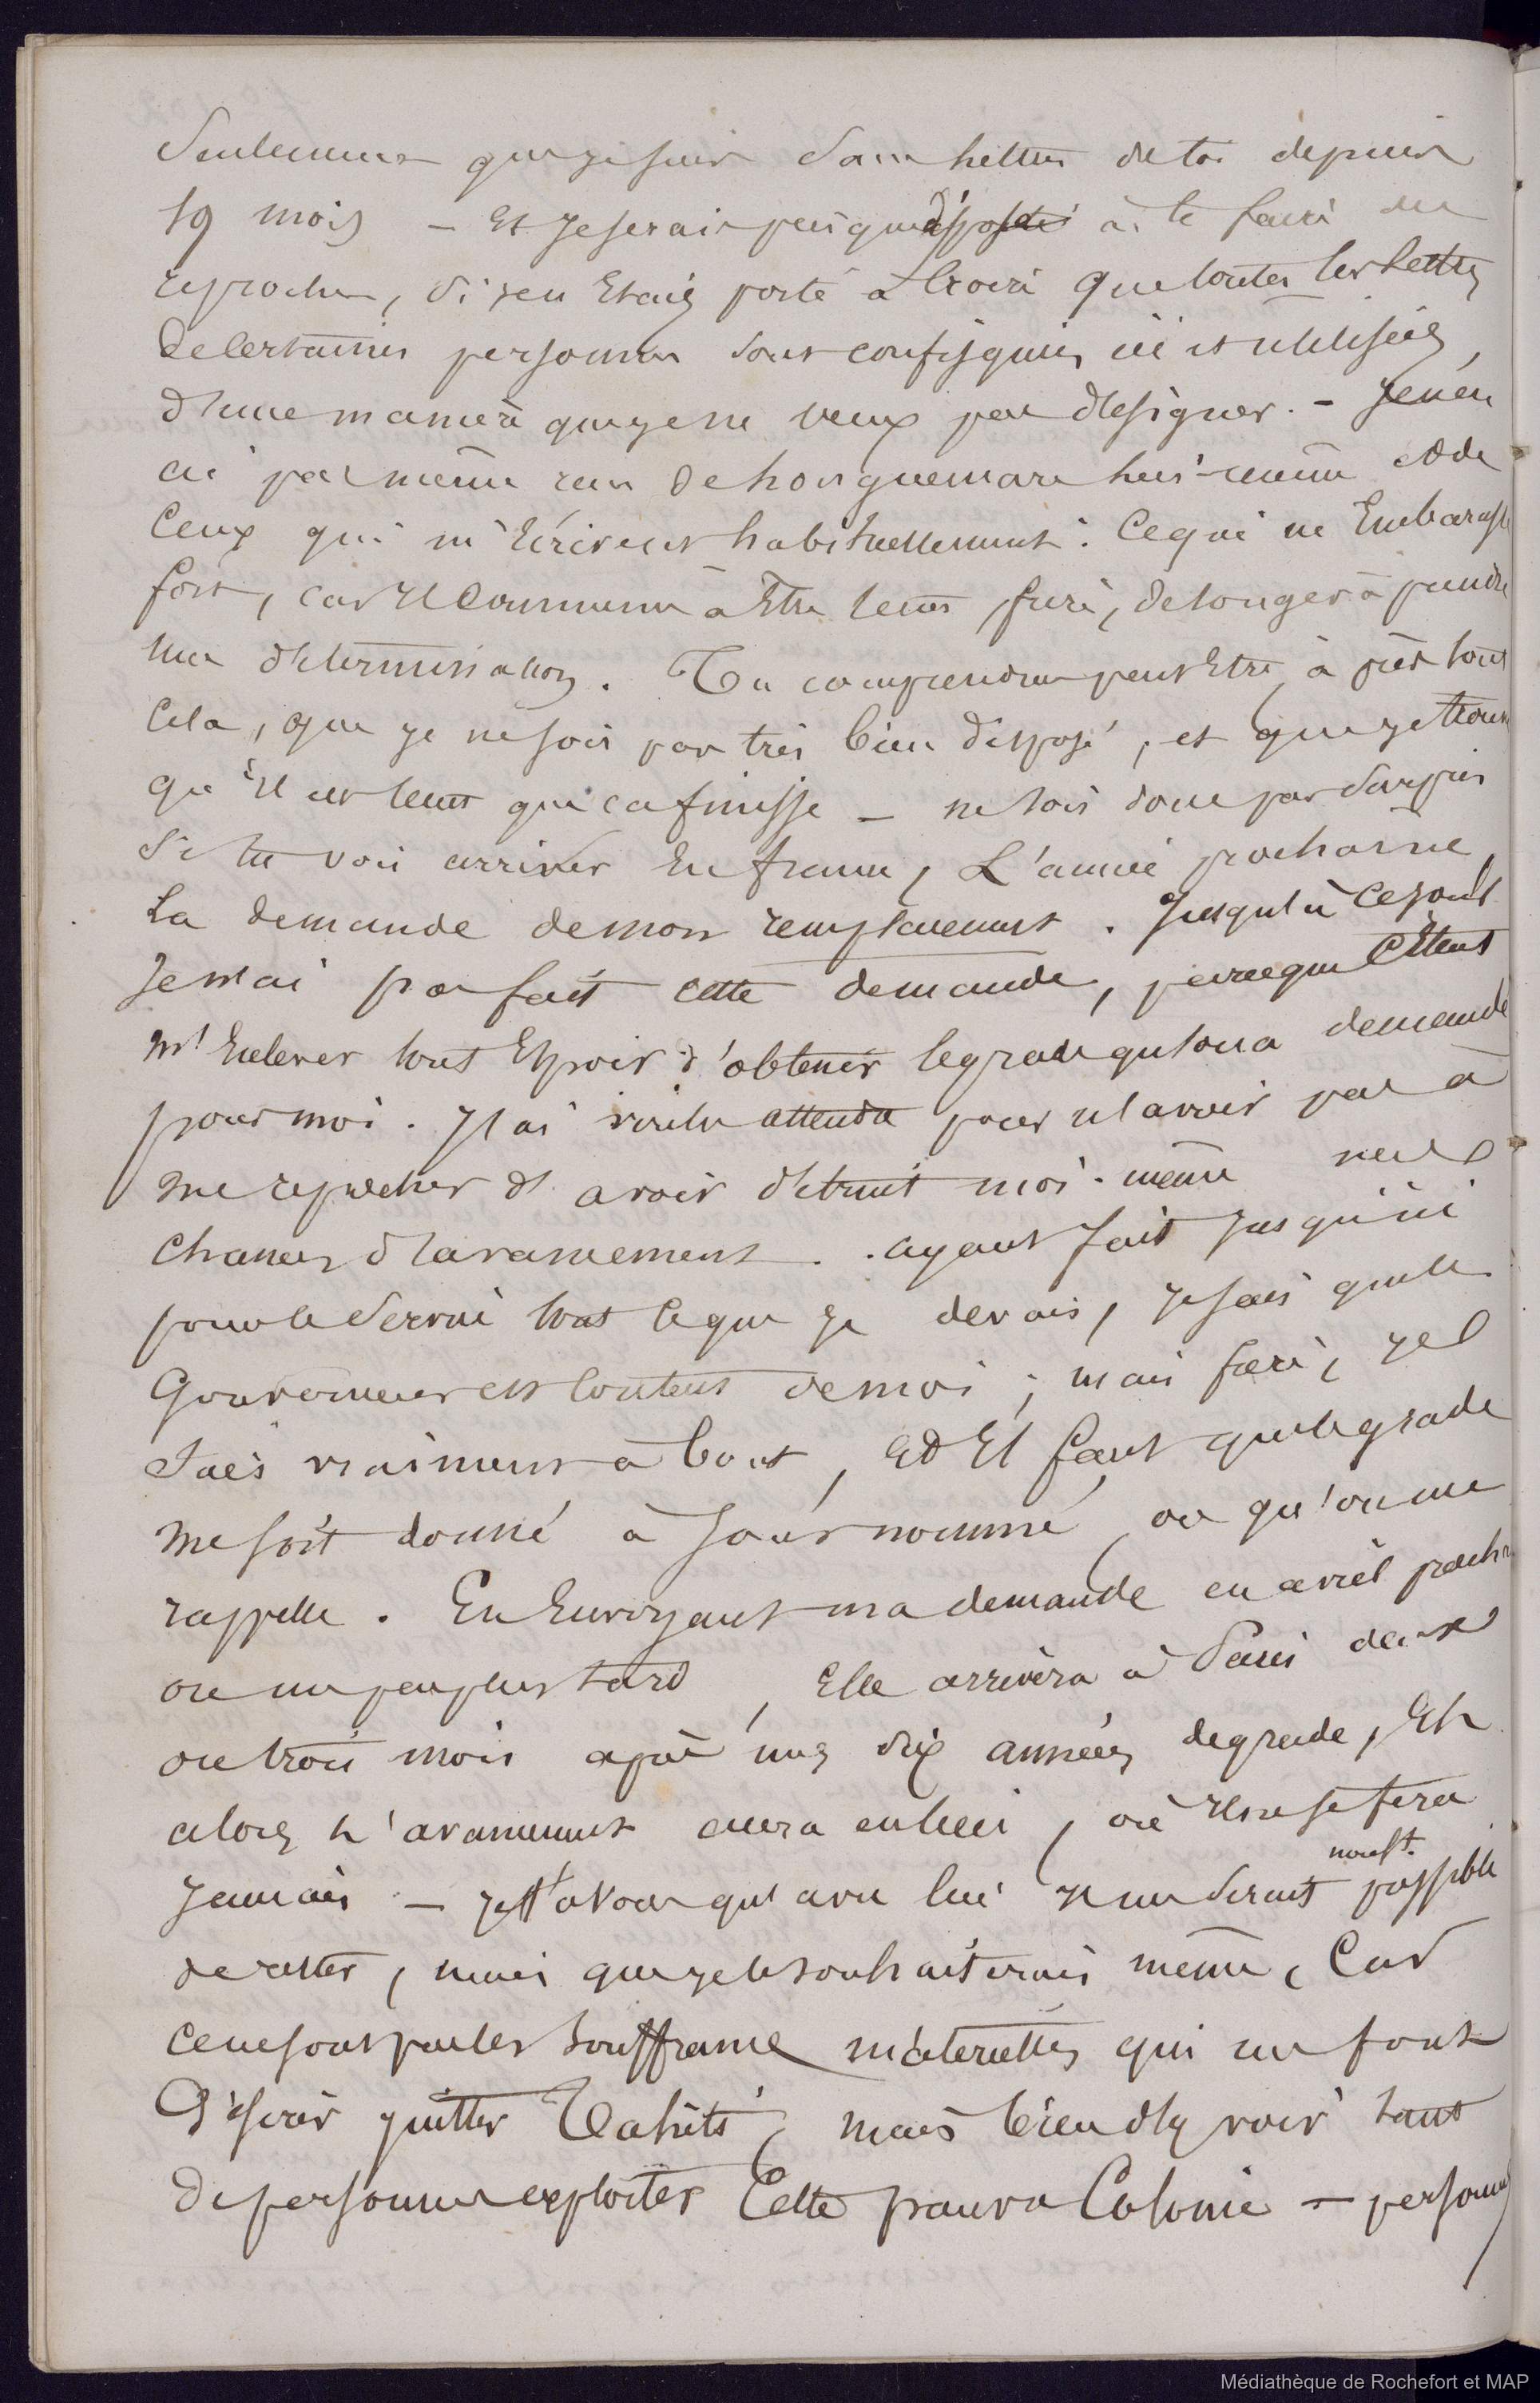 Seulement que je suis sans lettres de toi depuis
19 mois — Et je serais presque disposé à te faire des
reproches, si je n'en Etais porté à croire que toutes les lettres
de certaines personnes sont confisquées ici et utilisées,
d'une manière que je ne veux pas designer. — Je n'en
ai pas même reçu de houquemare lui-même et de
Ceux qui m'Ecrivent habituellement. Ce qui m'Embarasse
fort, car Il Commence à Etre tems, frère, de songer à prendre
une determination. Tu comprendras peut Etre, après tout
Cela, que je ne sois pas très bien disposé, et que je trouve
qu'Il est tems que ca finisse — ne sois donc pas surpris
Si tu vois arriver En france, L'année prochaine
La demande de mon remplacement. Jusqu'à ce jour
Je n'ai pas fait cette demande, parceque C'Etait
m'Enlever tout Espoir d'obtenir le grade qu'on a demandé
pour moi. J'ai voulu attendre pour n'avoir pas à
me reprocher d'avoir detruit moi-même mes
Chances d'avancement. ayant fait jusqu'ici
pour le Service tout ce que je devais, je sais que le
Gouverneur est content de moi; mais frère, je
suis vraiment à bout, Et Il faut que le grade
me soit donné à jour nommé, ou qu'on me
rappelle. En Envoyant ma demande en avril prochain
ou un peu plus tard, Elle arrivera à Paris deux
ou trois mois après mes dix années de grade, Et
alors l'avancement aura eu lieu, ou Il ne se fera
Jamais — je t'avoue qu'avec lui Il me serait nonst. possible
de rester, mais que je le souhaiterais même, Car
ce ne sont pas les souffrances matérielles qui me font
Désirer quitter Tahiti, mais bien d'y voir tant
de personnes exploiter Cette pauvre Colonie — personnes
Médiathèque de Rochefort et MAP